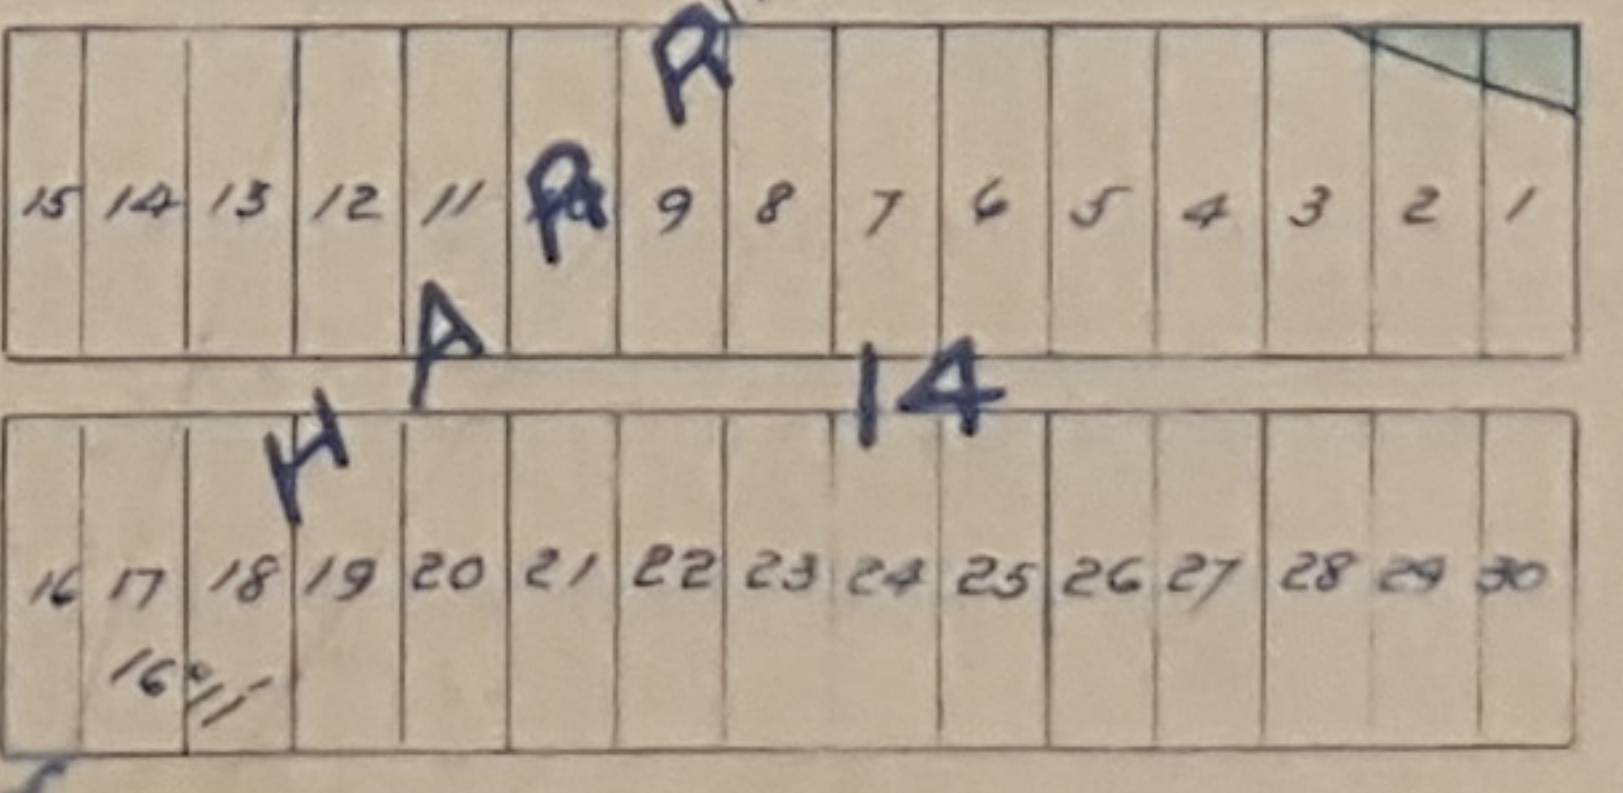 15 14 13 12 11 10 9 8 7 6 5 4 3 2 1
HARR
14
16 17 18 19 20 21 22 23 24 25 26 27 28 29 30